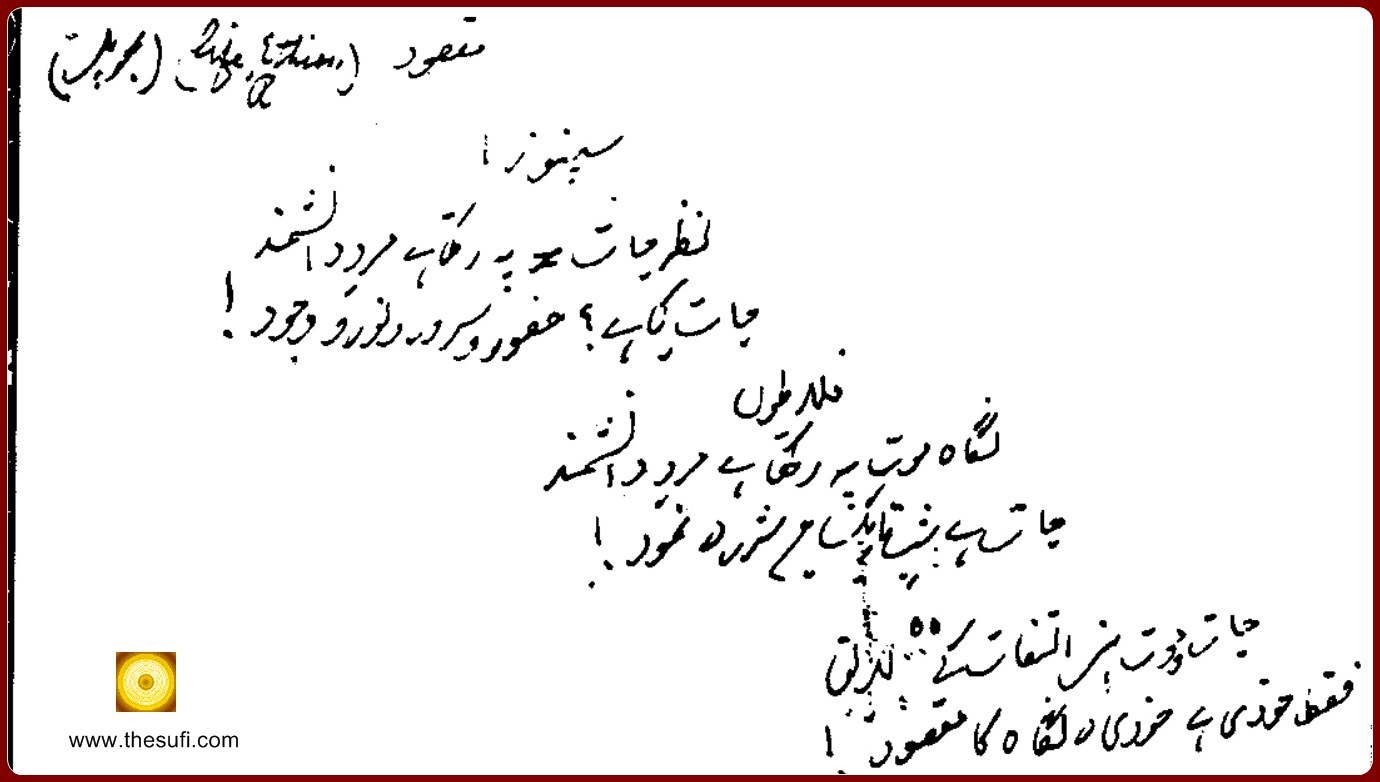 مقصود
سپنوزا
نظر حیات پہ رکھتا ہے مرد دانشمند
حیات کیا ہے؟ حضور و سرور و نور و وجود!
فلاطوں
نگاہ موت پہ رکھتا ہے مرد دانشمند
حیات ہے شب تاریک میں شرر کی نمود!
حیات و موت نہیں التفات کے لائق
فقط خودی ہے خودی کی نگاہ کا مقصود!
www.thesufi.com